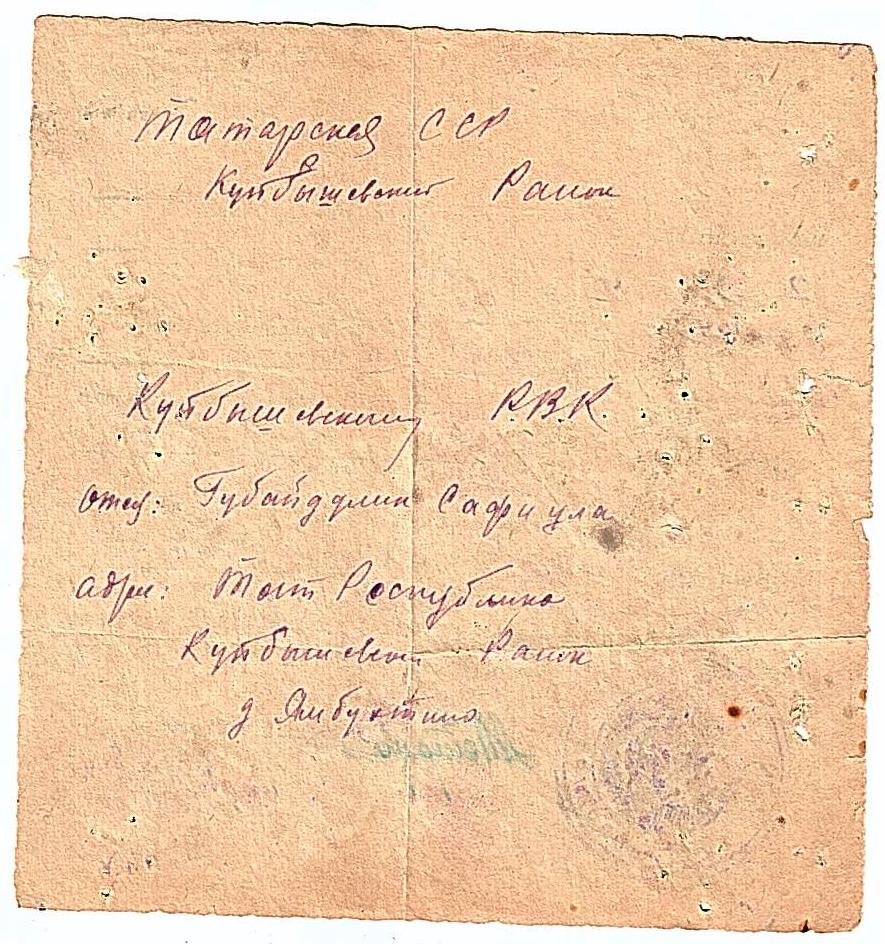 Татарская ССР
Куйбышевский Район
Куйбышевскому Р.В.К.
отец: Губайдулин Сафиула
адрес: Тат Республика
Куйбышевский Район
д Ямбухтино